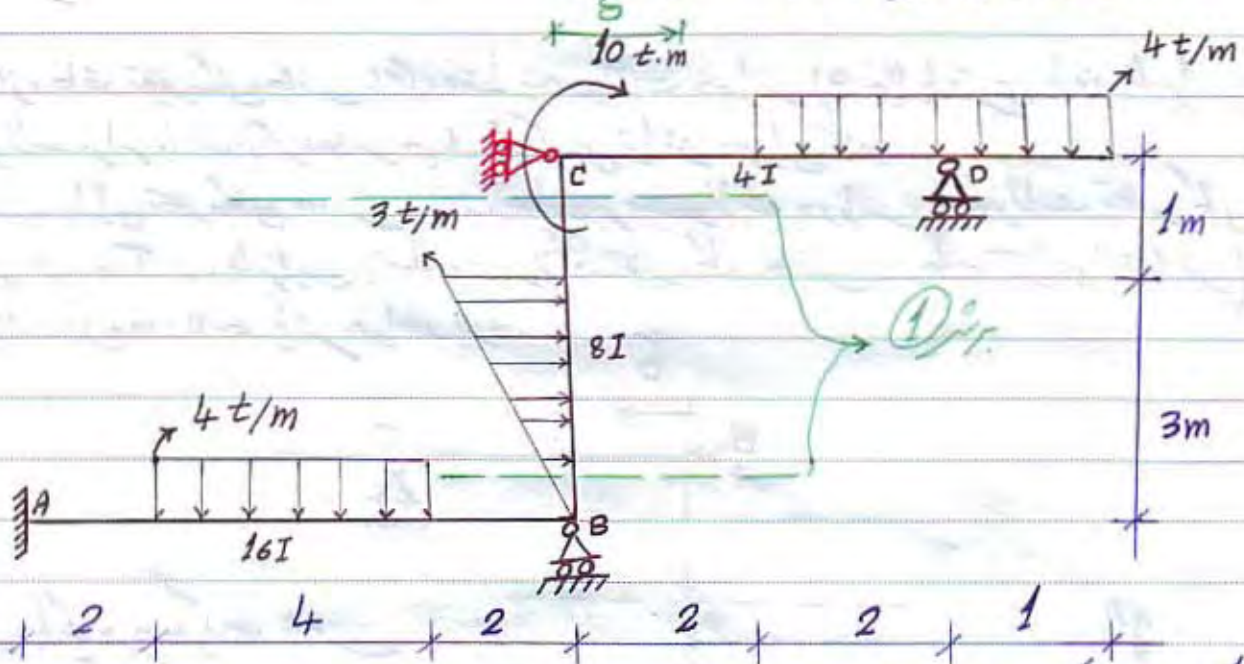 S
10 t.m
4 t/m
C
4I
D
1m
3 t/m
8I
①
4 t/m
3m
A
16I
B
2 4 2 2 2 1